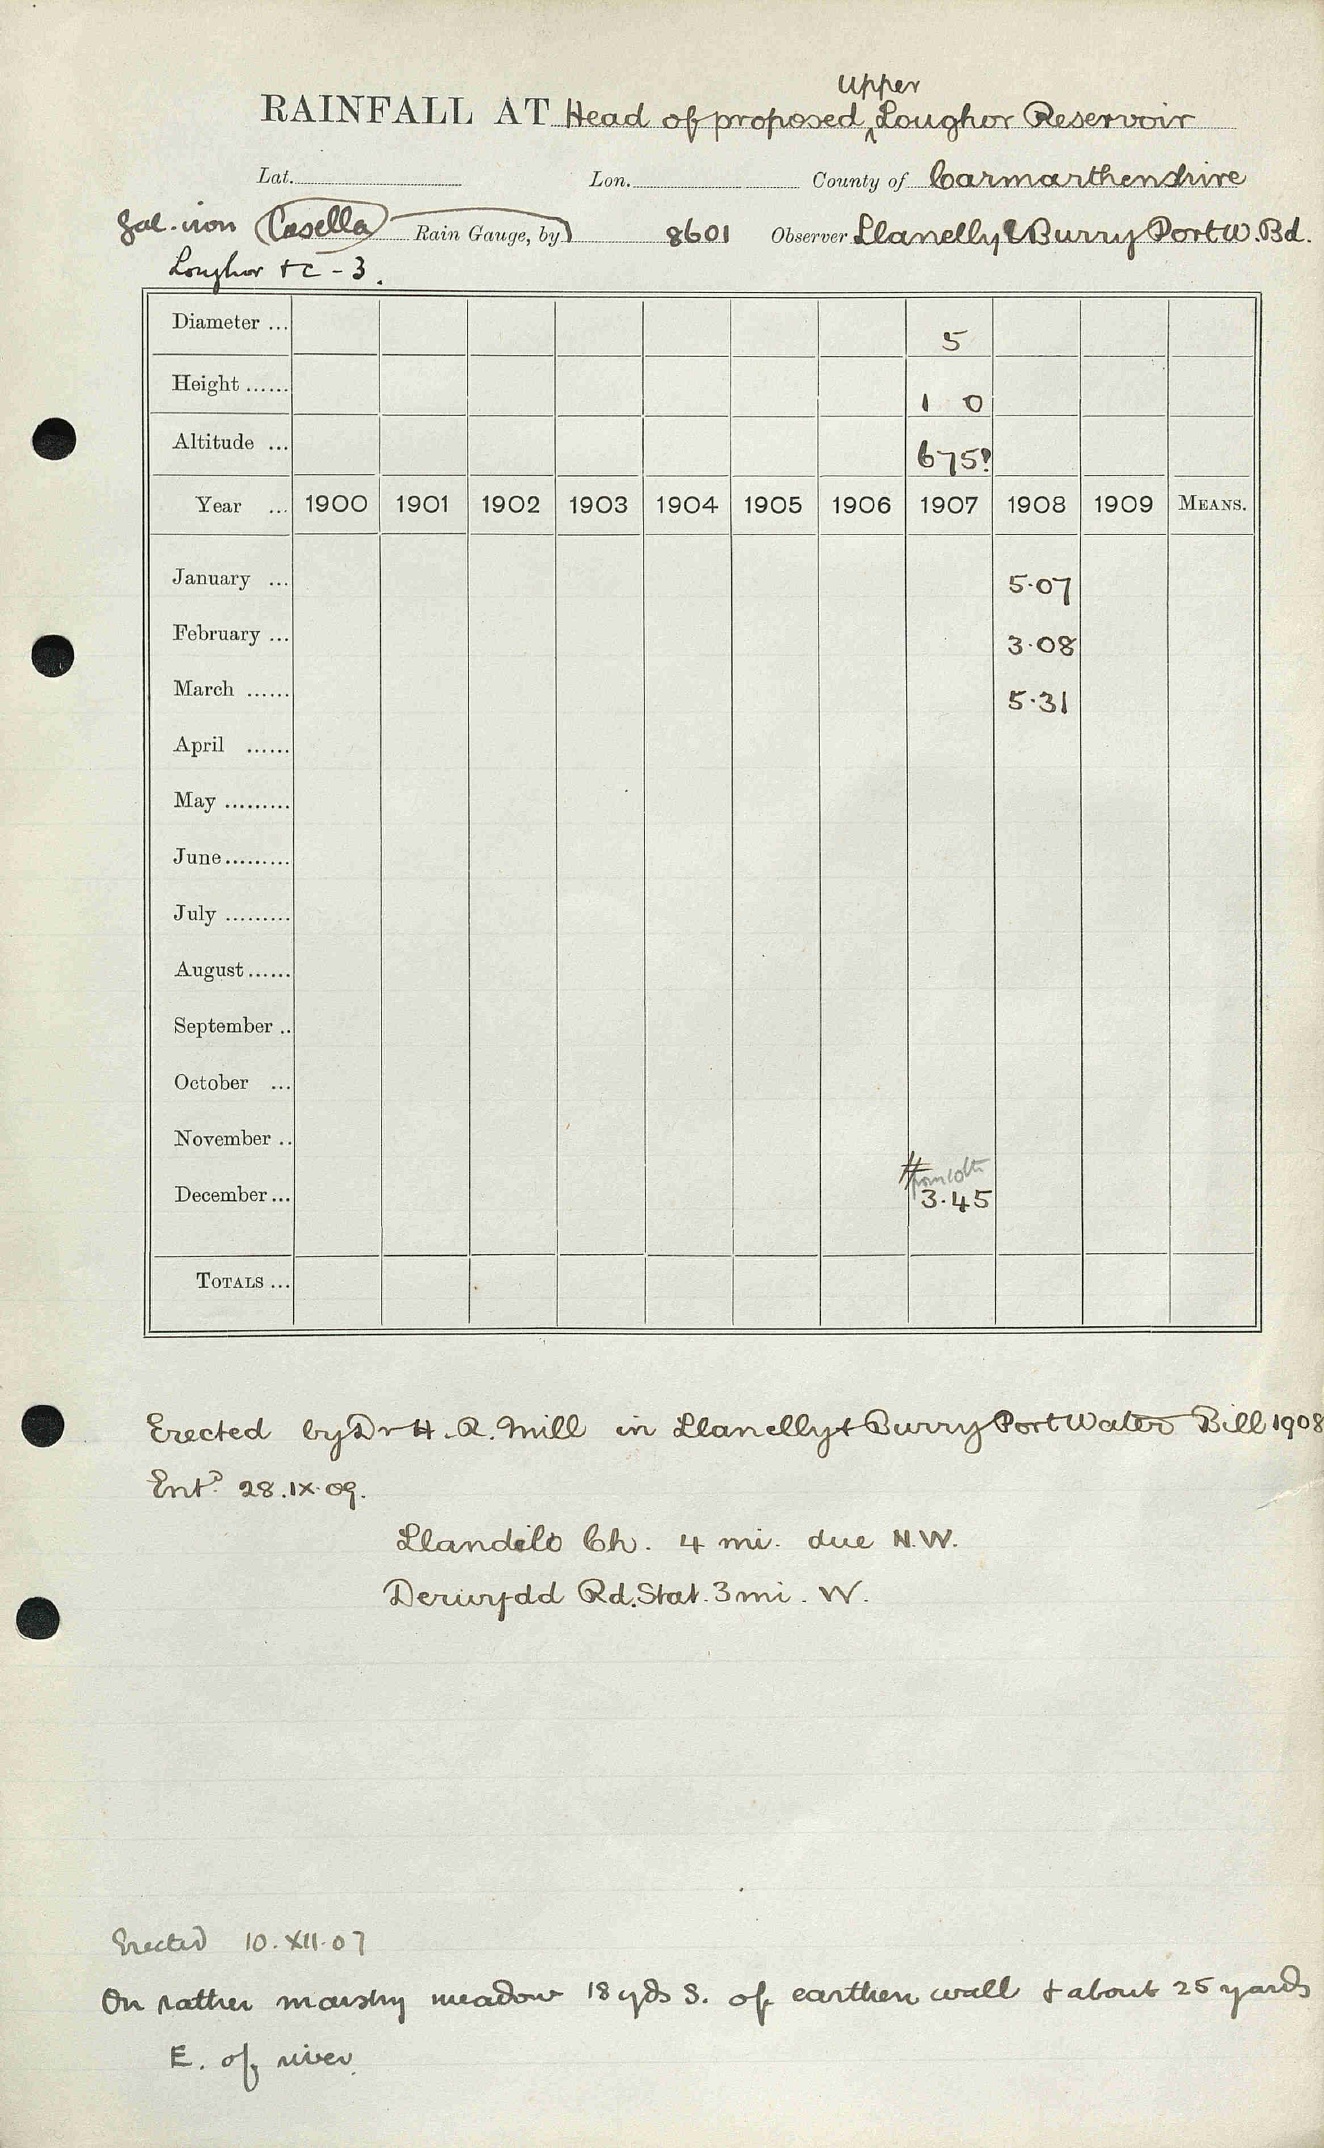 RAINFALL AT Head of proposed Upper Loughor Reservoir
Lat. Lon. County of Carmarthenshire
Gal. iron Casella Rain Gauge, by 8601 Observer Llanelly & Burry Port W. Bd.
Loughor + C - 3.
Diameter ... 5
Height ...... 1 0
Altitude ... 675?
Year ... 1900 1901 1902 1903 1904 1905 1906 1907 1908 1909 MEANS.
January ... 5.07
February ... 3.08
March ...... 5.31
April ......
May .........
June.........
July .........
August......
September ..
October ...
November ..
# from 10th
December... 3.45
TOTALS ...
Erected by Dr H. R. Mill in Llanelly & Burry Port Water Bill 1908
Entd. 28.IX.09.
Llandilo Ch. 4 mi. due N.W.
Derwydd Rd. Stat. 3 mi. W.
Erected 10.XII.07
On rather marshy meadow 18 yds S. of earthen wall & about 25 yards
E. of river.